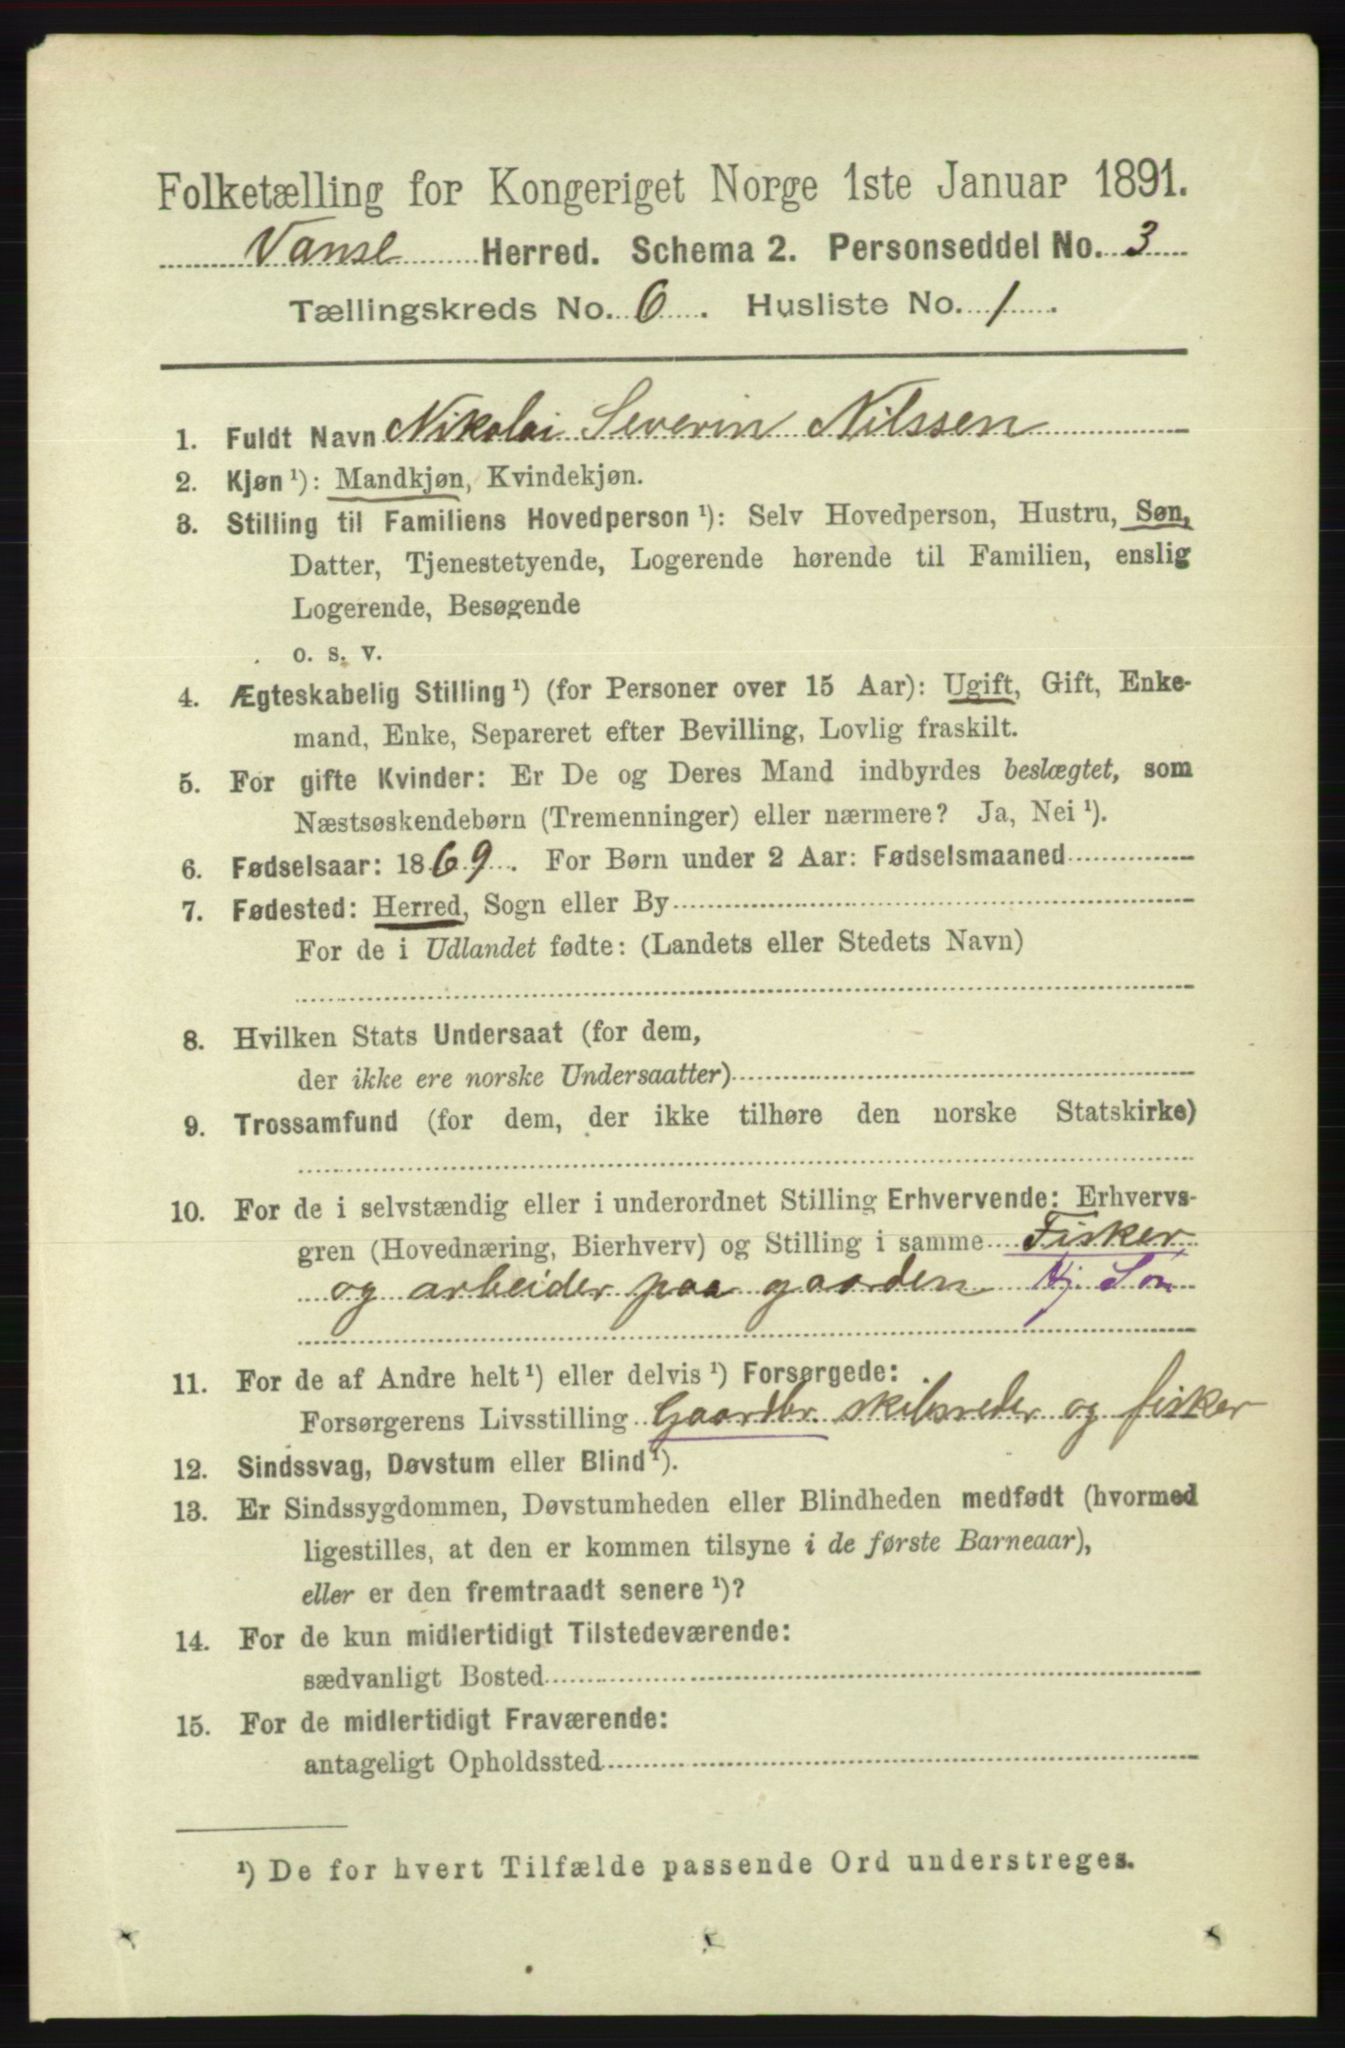 Folketælling for Kongeriget Norge 1ste Januar 1891.
Vanse Herred. Schema 2. Personseddel No. 3
Tællingskreds No. 6. Husliste No. 1.
1. Fuldt Navn Nikolai Severin Nilssen
2. Kjøn ¹): Mandkjøn, Kvindekjøn.
3. Stilling til Familiens Hovedperson ¹): Selv Hovedperson, Hustru, Søn,
Datter, Tjenestetyende, Logerende hørende til Familien, enslig
Logerende, Besøgende
o. s. v.
4. Ægteskabelig Stilling ¹) (for Personer over 15 Aar): Ugift, Gift, Enke-
mand, Enke, Separeret efter Bevilling, Lovlig fraskilt.
5. For gifte Kvinder: Er De og Deres Mand indbyrdes beslægtet, som
Næstsøskendebørn (Tremenninger) eller nærmere? Ja, Nei ¹).
6. Fødselsaar: 1869. For Børn under 2 Aar: Fødselsmaaned
7. Fødested: Herred, Sogn eller By
For de i Udlandet fødte: (Landets eller Stedets Navn)
8. Hvilken Stats Undersaat (for dem,
der ikke ere norske Undersaatter)
9. Trossamfund (for dem, der ikke tilhøre den norske Statskirke)
10. For de i selvstændig eller i underordnet Stilling Erhvervende: Erhvervs-
gren (Hovednæring, Bierhverv) og Stilling i samme Fisker
og arbeider paa gaarden Hj. Søn
11. For de af Andre helt ¹) eller delvis ¹) Forsørgede:
Forsørgerens Livsstilling Gaardbr. skibsreder og fisker
12. Sindssvag, Døvstum eller Blind ¹).
13. Er Sindssygdommen, Døvstumheden eller Blindheden medfødt (hvormed
ligestilles, at den er kommen tilsyne i de første Barneaar),
eller er den fremtraadt senere ¹)?
14. For de kun midlertidigt Tilstedeværende:
sædvanligt Bosted
15. For de midlertidigt Fraværende:
antageligt Opholdssted
¹) De for hvert Tilfælde passende Ord understreges.